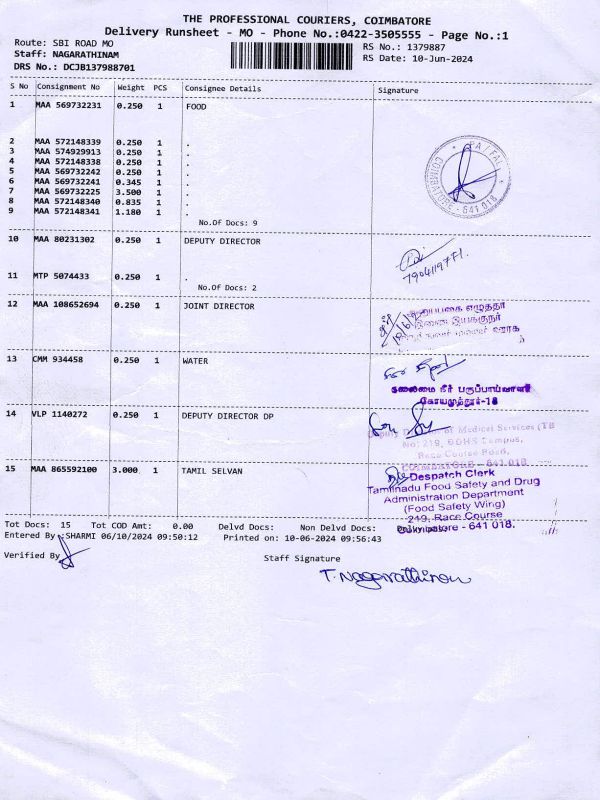 THE PROFESSIONAL COURIERS, COIMBATORE
Delivery Runsheet - MO - Phone No.:0422-3505555 - Page No.:1
Route: SBI ROAD MO
RS No.: 1379887
Staff: NAGARATHINAM
RS Date: 10-Jun-2024
DRS No.: DCJB137988701
S No Consignment No Weight PCS Consignee Details Signature
1 MAA 569732231 0.250 1 FOOD
2 MAA 572148339 0.250 1 .
3 MAA 574929913 0.250 1 .
4 MAA 572148338 0.250 1 .
5 MAA 569732242 0.250 1 .
6 MAA 569732241 0.345 1 .
7 MAA 569732225 3.500 1 .
8 MAA 572148340 0.835 1 .
9 MAA 572148341 1.180 1 .
No.Of Docs: 9
COIMBATORE - 641 018
10 MAA 80231302 0.250 1 DEPUTY DIRECTOR
11 MTP 5074433 0.250 1 .
No.Of Docs: 2
12 MAA 108652694 0.250 1 JOINT DIRECTOR
13 CMM 934458 0.250 1 WATER
தலைமை நீர் பகுப்பாய்வாளர்
கோயமுத்தூர்-18
14 VLP 1140272 0.250 1 DEPUTY DIRECTOR DP
Deputy Director of Medical Services (TB
No: 219, DDHS Campus,
Race Course Road,
COIMBATORE - 641 018
15 MAA 865592100 3.000 1 TAMIL SELVAN
Despatch Clerk
Tamilnadu Food Safety and Drug
Administration Department
(Food Safety Wing)
219, Race Course
Coimbatore - 641 018.
Tot Docs: 15 Tot COD Amt: 0.00 Delvd Docs: Non Delvd Docs:
Entered By :SHARMI 06/10/2024 09:50:12 Printed on: 10-06-2024 09:56:43
Verified By
Staff Signature
T. Nagarathinam